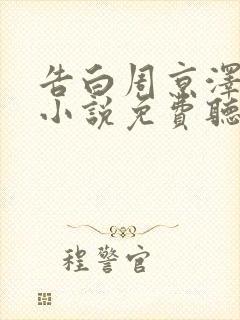 告白周京澤
小說免費聽
程警官